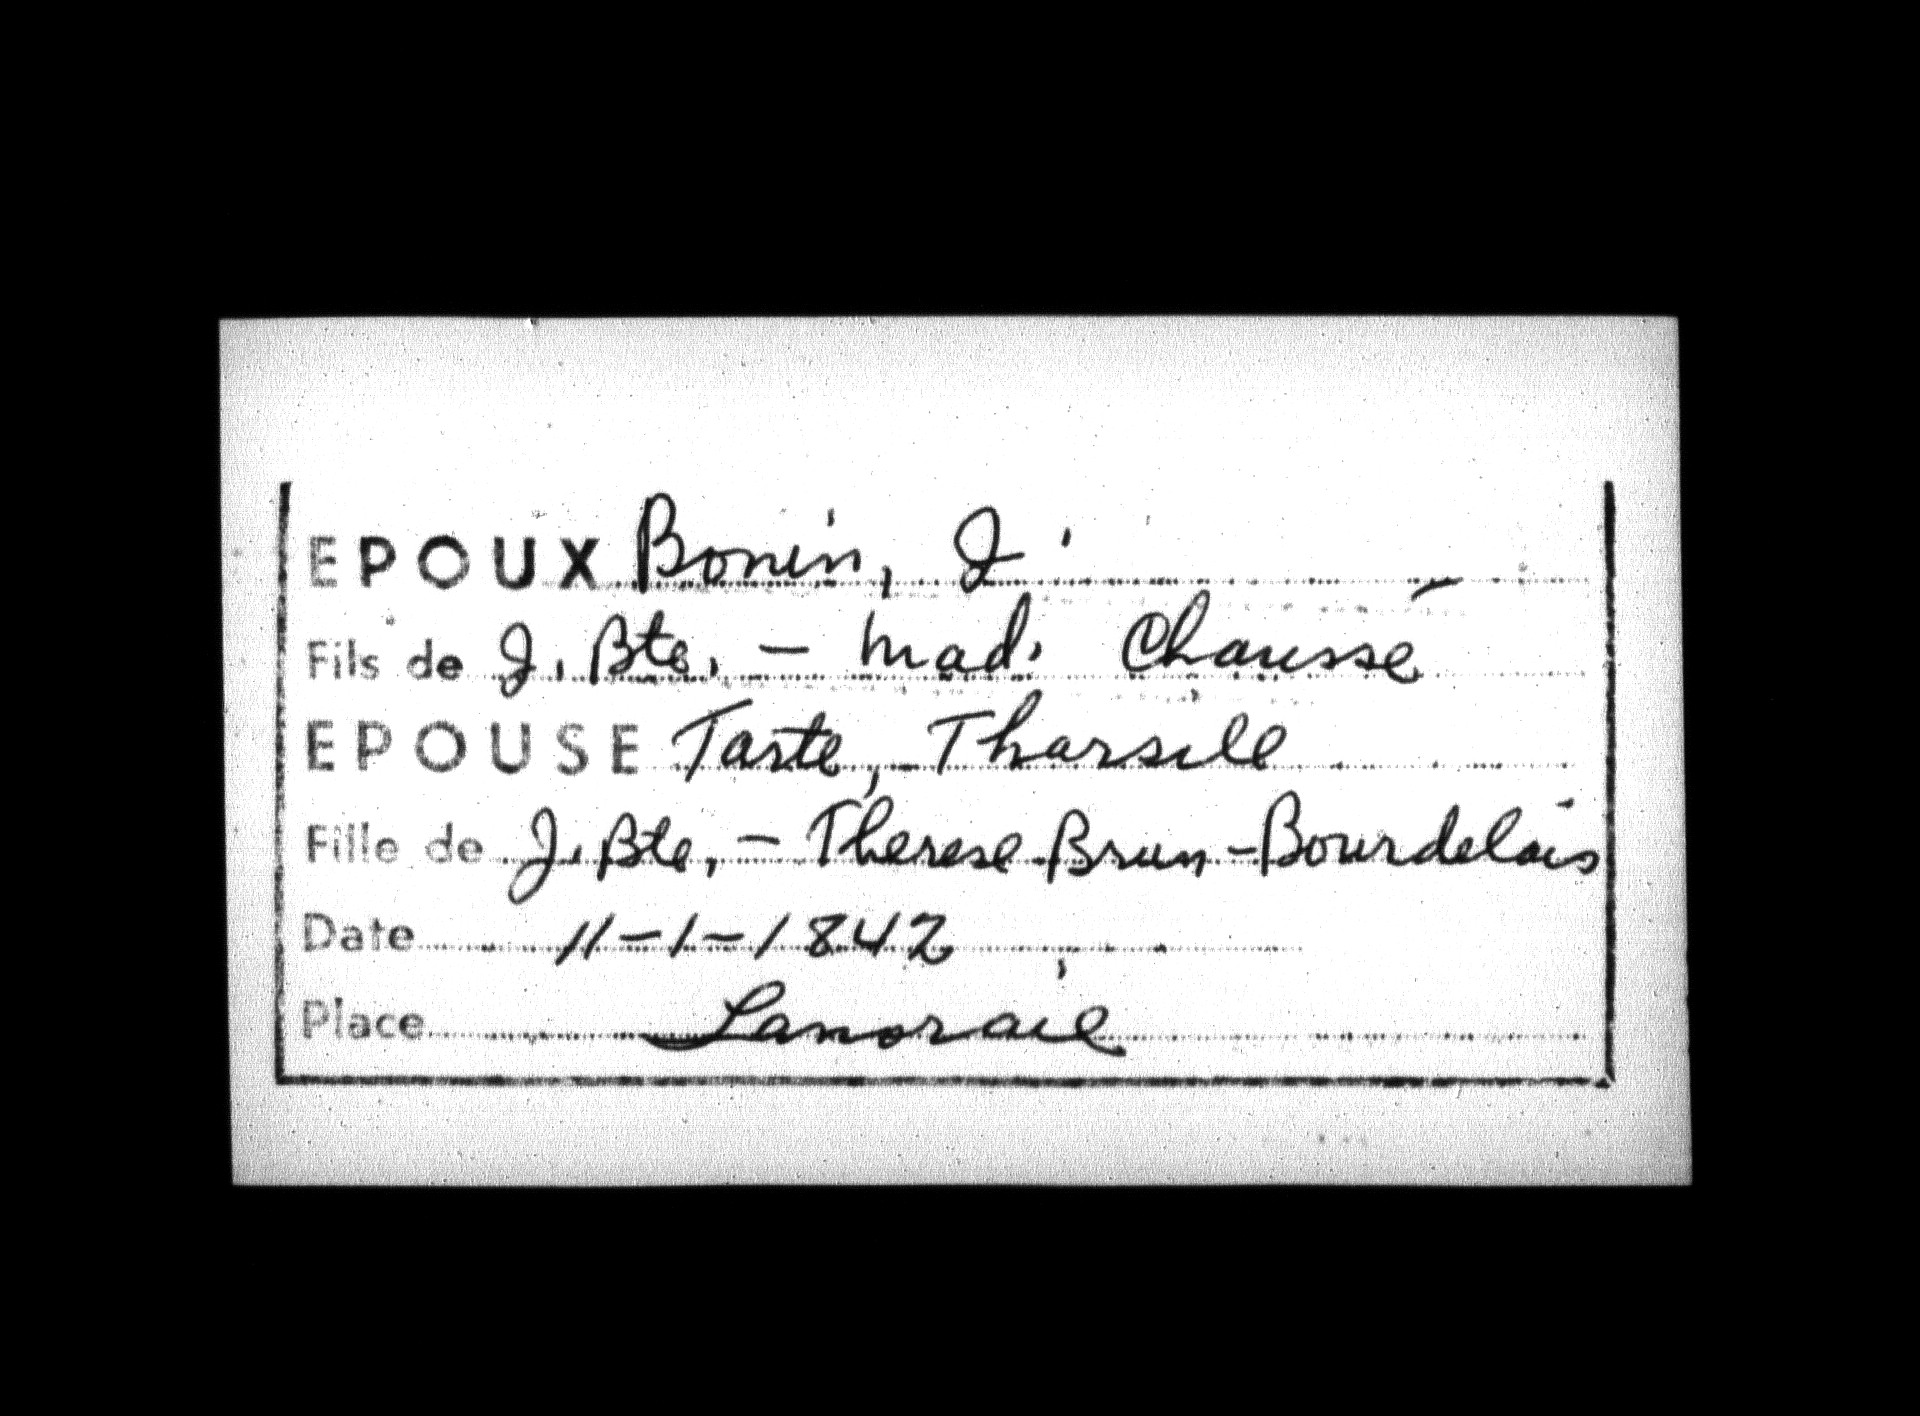 EPOUX Bonin, J.
Fils de J. Bte. - Mad. Chaussé
EPOUSE Taste, Tharsile
Fille de J. Bte. - Therese Brun-Bourdelais
Date 11-1-1842
Place Lanoraie